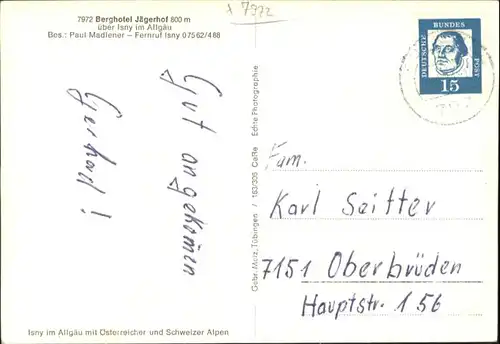 7972 Berghotel Jägerhof 800 m
über Isny im Allgäu
Bes.: Paul Madlener – Fernruf Isny 07562/488
x 7972
Gut angekommen
Gerhard!
Isny im Allgäu mit Österreicher und Schweizer Alpen
Gebr. Metz, Tübingen / 163/335 CeRe Echte Photographie
DEUTSCHE
BUNDES
POST
15
Fam.
Karl Seitter
7151 Oberbrüden
Hauptstr. 156